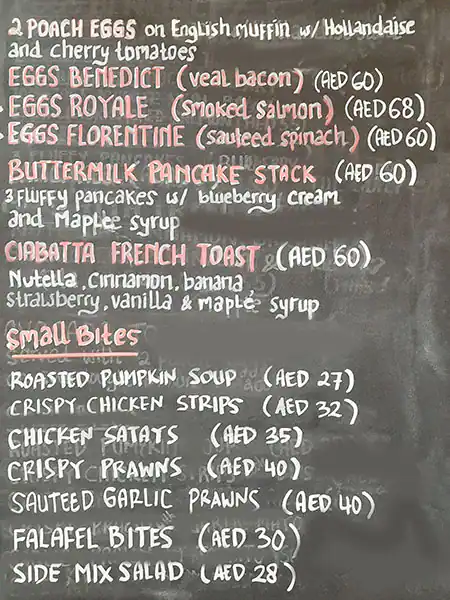 2 POACH EGGS on English muffin w/ Hollandaise
and cherry tomatoes
EGGS BENEDICT (veal bacon) (AED 60)
EGGS ROYALE (smoked salmon) (AED 68)
EGGS FLORENTINE (sauteed spinach) (AED 60)
BUTTERMILK PANCAKE STACK (AED 60)
3 Fluffy pancakes w/ blueberry cream
and Maple syrup
CIABATTA FRENCH TOAST (AED 60)
Nutella, Cinnamon, banana
strawberry, vanilla & maple syrup
Small Bites
ROASTED PUMPKIN SOUP (AED 27)
CRISPY CHICKEN STRIPS (AED 32)
CHICKEN SATAYS (AED 35)
CRISPY PRAWNS (AED 40)
SAUTEED GARLIC PRAWNS (AED 40)
FALAFEL BITES (AED 30)
SIDE MIX SALAD (AED 28)